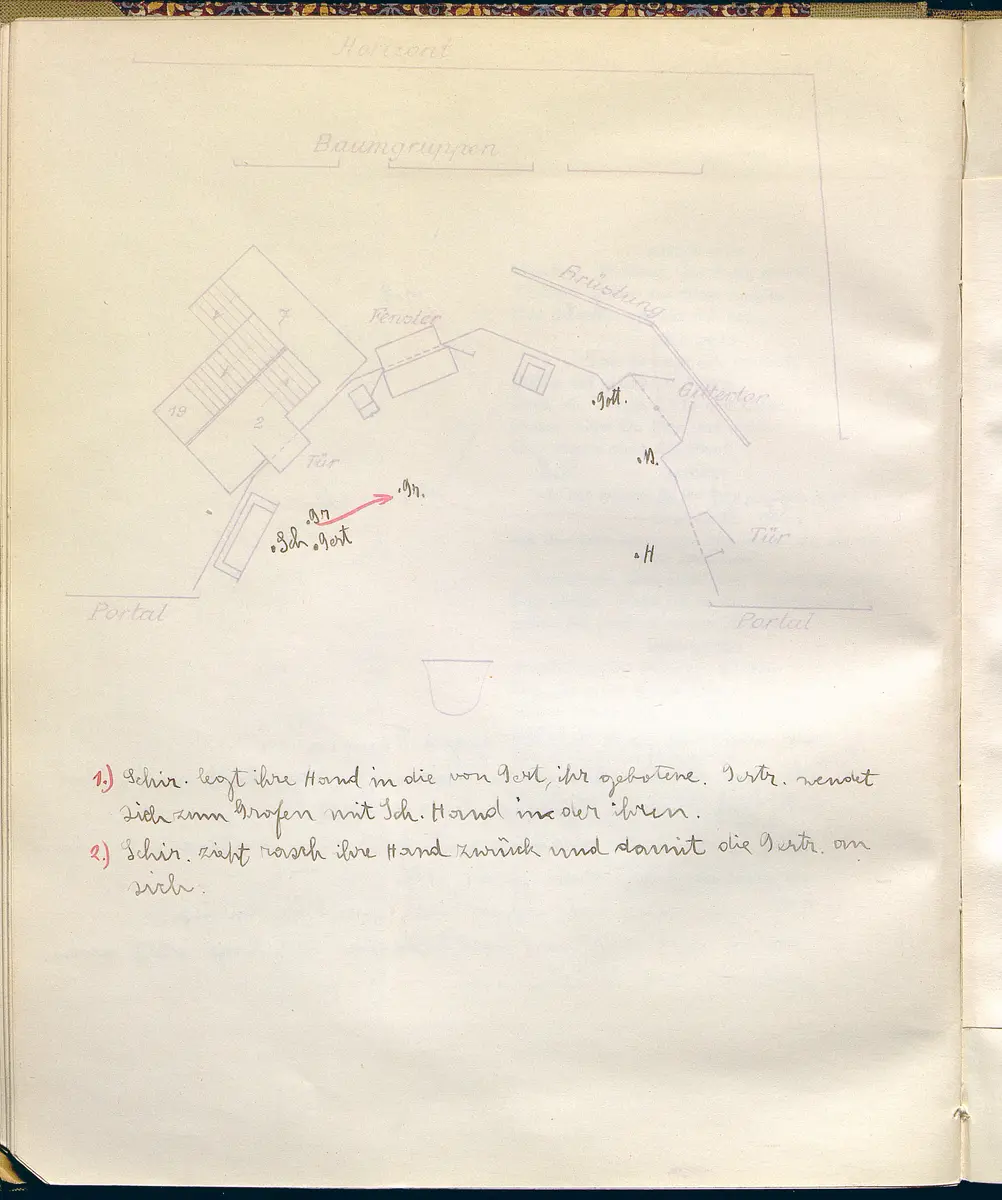 Horizont
Baumgruppen
Brüstung
Fenster
7
19
2
Gittertor
.Gott.
.N.
Tür
.Gr.
.Gr
.Sch .Gert
Tür
.H
Portal
Portal
1.) Schir. legt ihre Hand in die von Gert, ihr gebotene. Gertr. wendet
sich zum Grafen mit Sch. Hand in der ihren.
2.) Schir. zieht rasch ihre Hand zurück und damit die Gertr. an
sich.